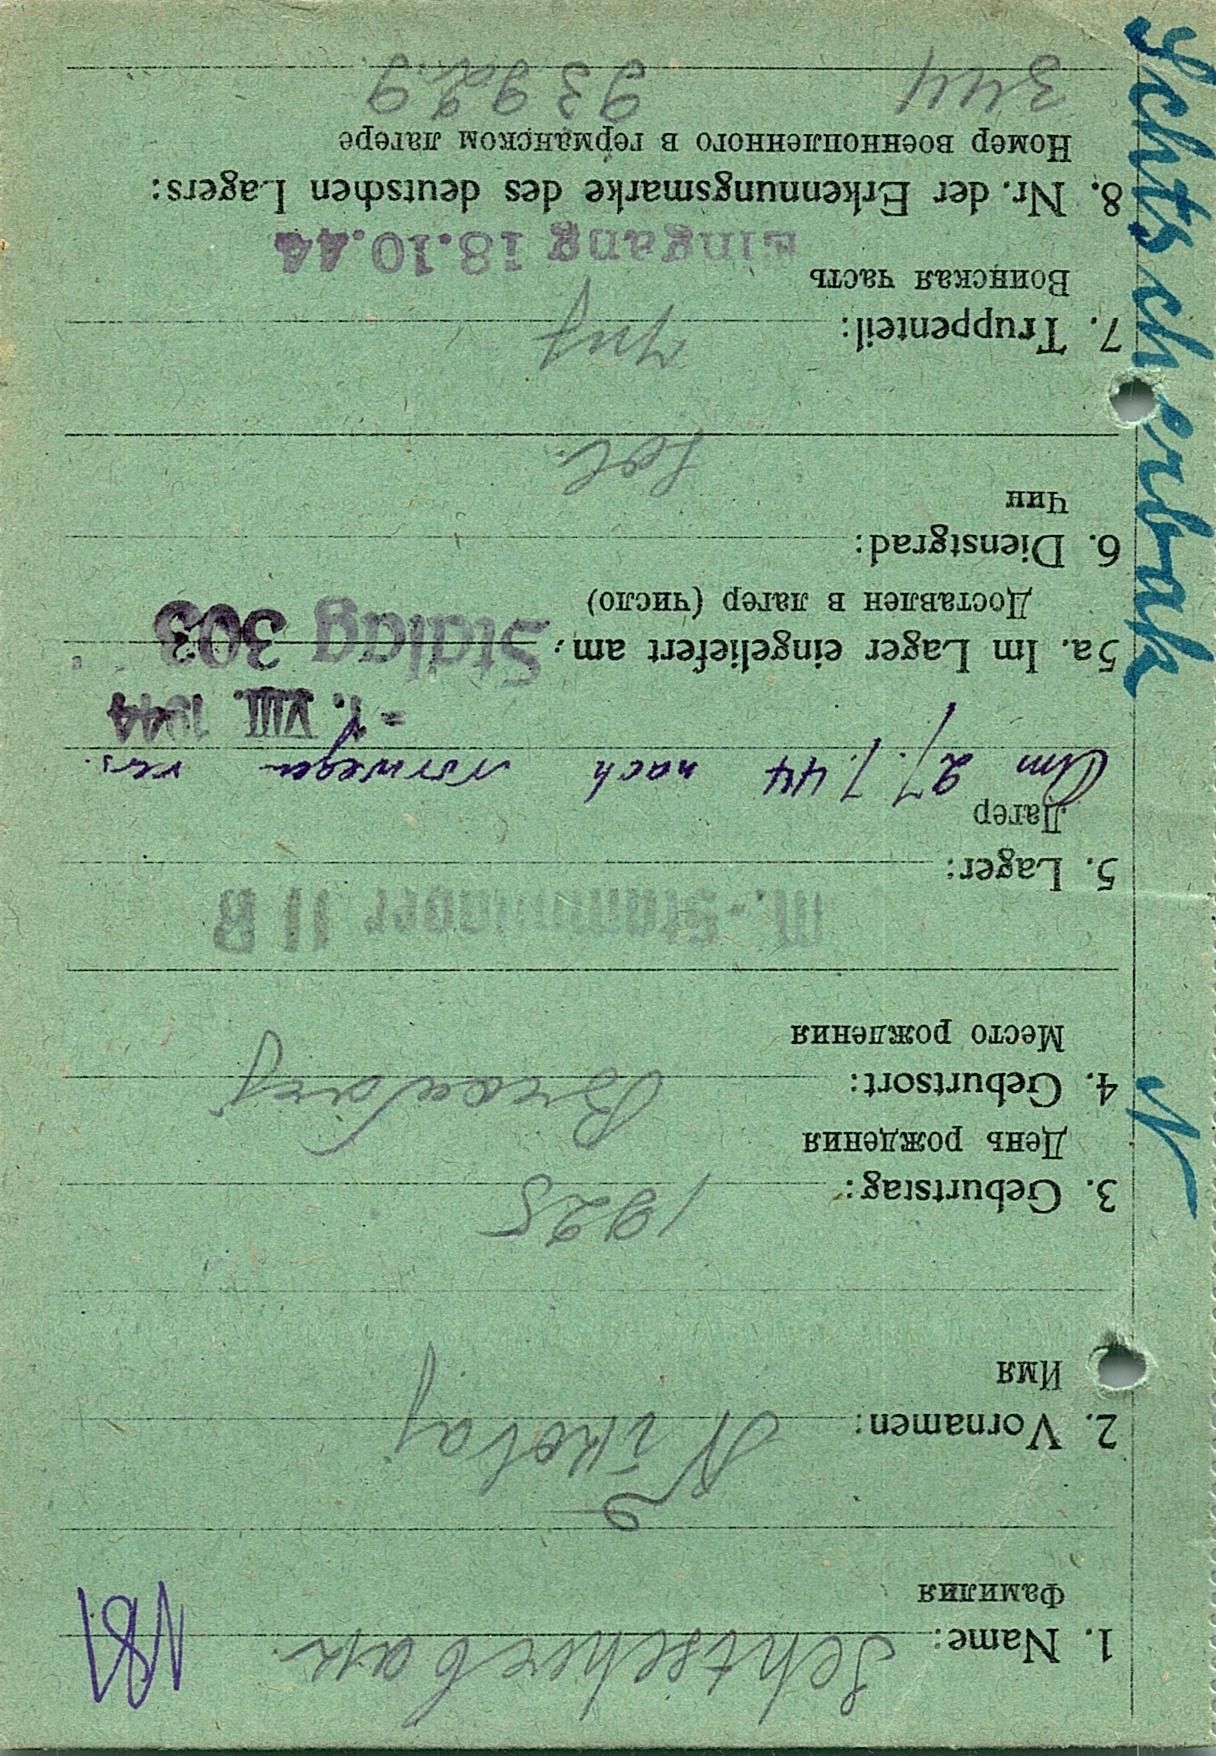 Schtscherbak N
181
1. Name: Schtscherbak
Фамилия
2. Vornamen: Nikolaj
Имя
3. Geburtstag: 1925
День рождения
4. Geburtsort:
Место рождения
M.-Stammlager II B
5. Lager:
Лагер
Am 27.7.44 nach Norwegen vers.
- 1. VIII. 1944
5a. Im Lager eingeliefert am: Stalag 303
Доставлен в лагер (число)
6. Dienstgrad:
Чин
Sol.
7. Truppenteil: Inf
Воинская часть
Eingang 18.10.44
8. Nr. der Erkennungsmarke des deutschen Lagers:
Номер военнопленного в германском лагере
344